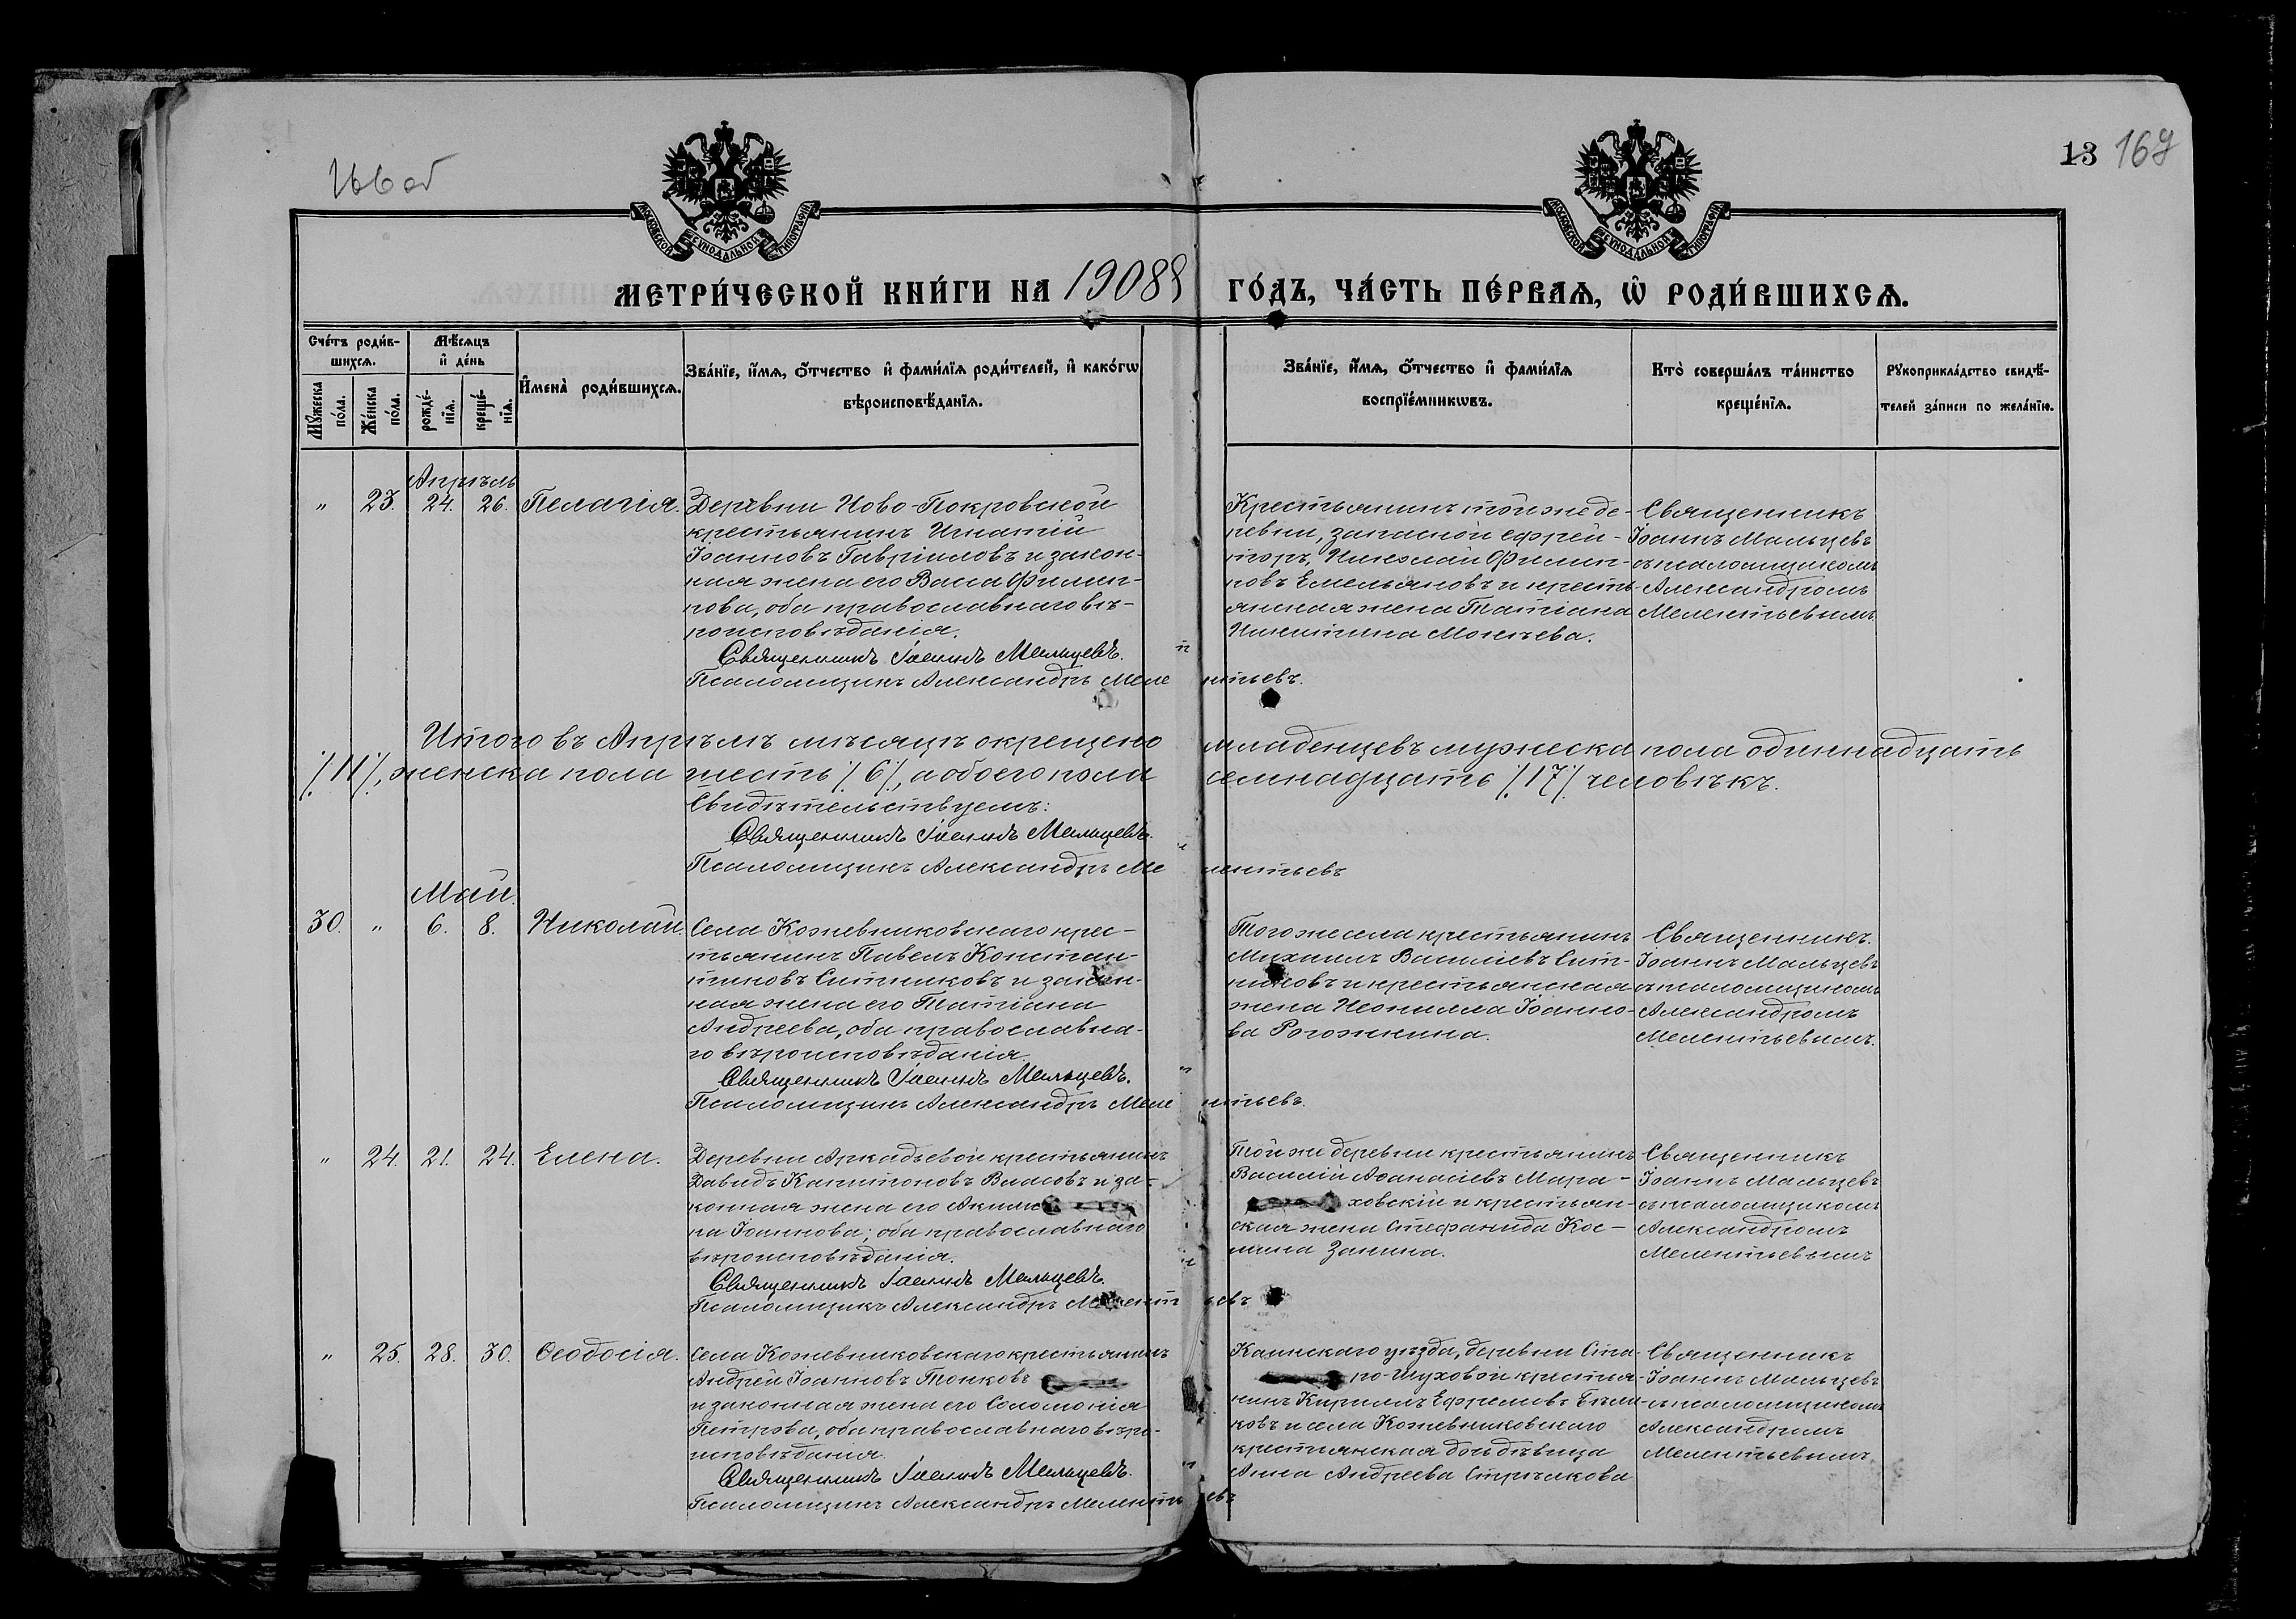 166 об
13 169
МОСКОВСКОЙ СУНОДАЛЬНОЙ ТИПОГРАФІИ
МОСКОВСКОЙ СУНОДАЛЬНОЙ ТИПОГРАФІИ
МЕТРИ́ЧЕСКОЙ КНИ́ГИ НА 1908 ГО́ДЪ, ЧА́СТЬ ПЕ́РВАѦ, Ѿ РОДИ́ВШИХСѦ.
Сче́тъ роди́в-
шихсѧ.
Мꙋ́жеска
по́ла.
Же́нска
по́ла.
Мѣ́сѧцъ
и҆ де́нь
рожде́-
нїѧ.
креще́-
нїѧ.
И҆мена̀ роди́вшихсѧ.
Зва́нїе, и҆́мѧ, ѻ҆́тчество и҆ фами́лїѧ роди́телей, и҆ како́гѡ
вѣроисповѣ́данїѧ.
Зва́нїе, и҆́мѧ, ѻ҆́тчество и҆ фами́лїѧ
воспрїе́мникѡвъ.
Кто̀ соверша́лъ та́инство
креще́нїѧ.
Рꙋкоприкла́дство свидѣ́-
телей за́писи по жела́нїю.
Апрѣль
" 23. 24. 26. Пелагія.
Деревни Ново-Покровской
крестьянинъ Игнатій
Іоанновъ Гавріиловъ и закон-
ная жена его Васса Филип-
пова, оба православнаго вѣ-
роисповѣданія.
Священникъ Іоаннъ Мальцевъ.
Псаломщикъ Александръ Мелентьевъ.
Крестьянинъ той же де-
ревни, запасной ефрей-
торъ, Николай Филип-
повъ Емельяновъ и кресть-
янская жена Татіана
Никитина Мокѣева.
Священникъ
Іоаннъ Мальцевъ
съ псаломщикомъ
Александромъ
Мелентьевымъ
Итого въ Апрѣлѣ мѣсяцѣ окрещено младенцевъ мужеска пола одиннадцать
/11/, женска пола шесть /6/, а обоего пола семнадцать /17/ человѣкъ.
Свидѣтельствуемъ:
Священникъ Іоаннъ Мальцевъ.
Псаломщикъ Александръ Мелентьевъ
Май.
30. " 6. 8. Николай.
Села Кожевниковскаго крес-
тьянинъ Павелъ Констан-
тиновъ Ситниковъ и закон-
ная жена его Татіана
Андреева, оба православна-
го вѣроисповѣданія.
Священникъ Іоаннъ Мальцевъ.
Псаломщикъ Александръ Мелентьевъ.
Того же села крестьянинъ
Михаилъ Василіевъ Сит-
никовъ и крестьянская
жена Неонилла Іоанно-
ва Рогожкина.
Священникъ.
Іоаннъ Мальцевъ
съ псаломщикомъ
Александромъ
Мелентьевымъ.
" 24. 21. 24. Елена.
Деревни Аркадьевой крестьянинъ
Давидъ Капитоновъ Власовъ и за-
конная жена его Акили-
на Іоаннова; оба православнаго
вѣроисповѣданія.
Священникъ Іоаннъ Мальцевъ.
Псаломщикъ Александръ Мелентьевъ
Той же деревни крестьянинъ
Василій Аѳанасіевъ Мара-
ховскій и крестьян-
ская жена Стефанида Кос-
мина Занина.
Священникъ
Іоаннъ Мальцевъ
съ псаломщикомъ
Александромъ
Мелентьевымъ
" 25. 28. 30. Ѳеодосія.
Села Кожевниковскаго крестьянинъ
Андрей Іоанновъ Тонковъ
и законная жена его Соломонія
Петрова, оба православнаго вѣро-
исповѣданія.
Священникъ Іоаннъ Мальцевъ.
Псаломщикъ Александръ Мелентьевъ
Каинскаго уѣзда, деревни Ста-
ро-Шуховой крестья-
нинъ Кириллъ Ефремовъ Бѣли-
ковъ и села Кожевниковскаго
крестьянская дочь дѣвица
Анна Андреева Стрѣлкова
Священникъ
Іоаннъ Мальцевъ
съ псаломщикомъ
Александромъ
Мелентьевымъ.